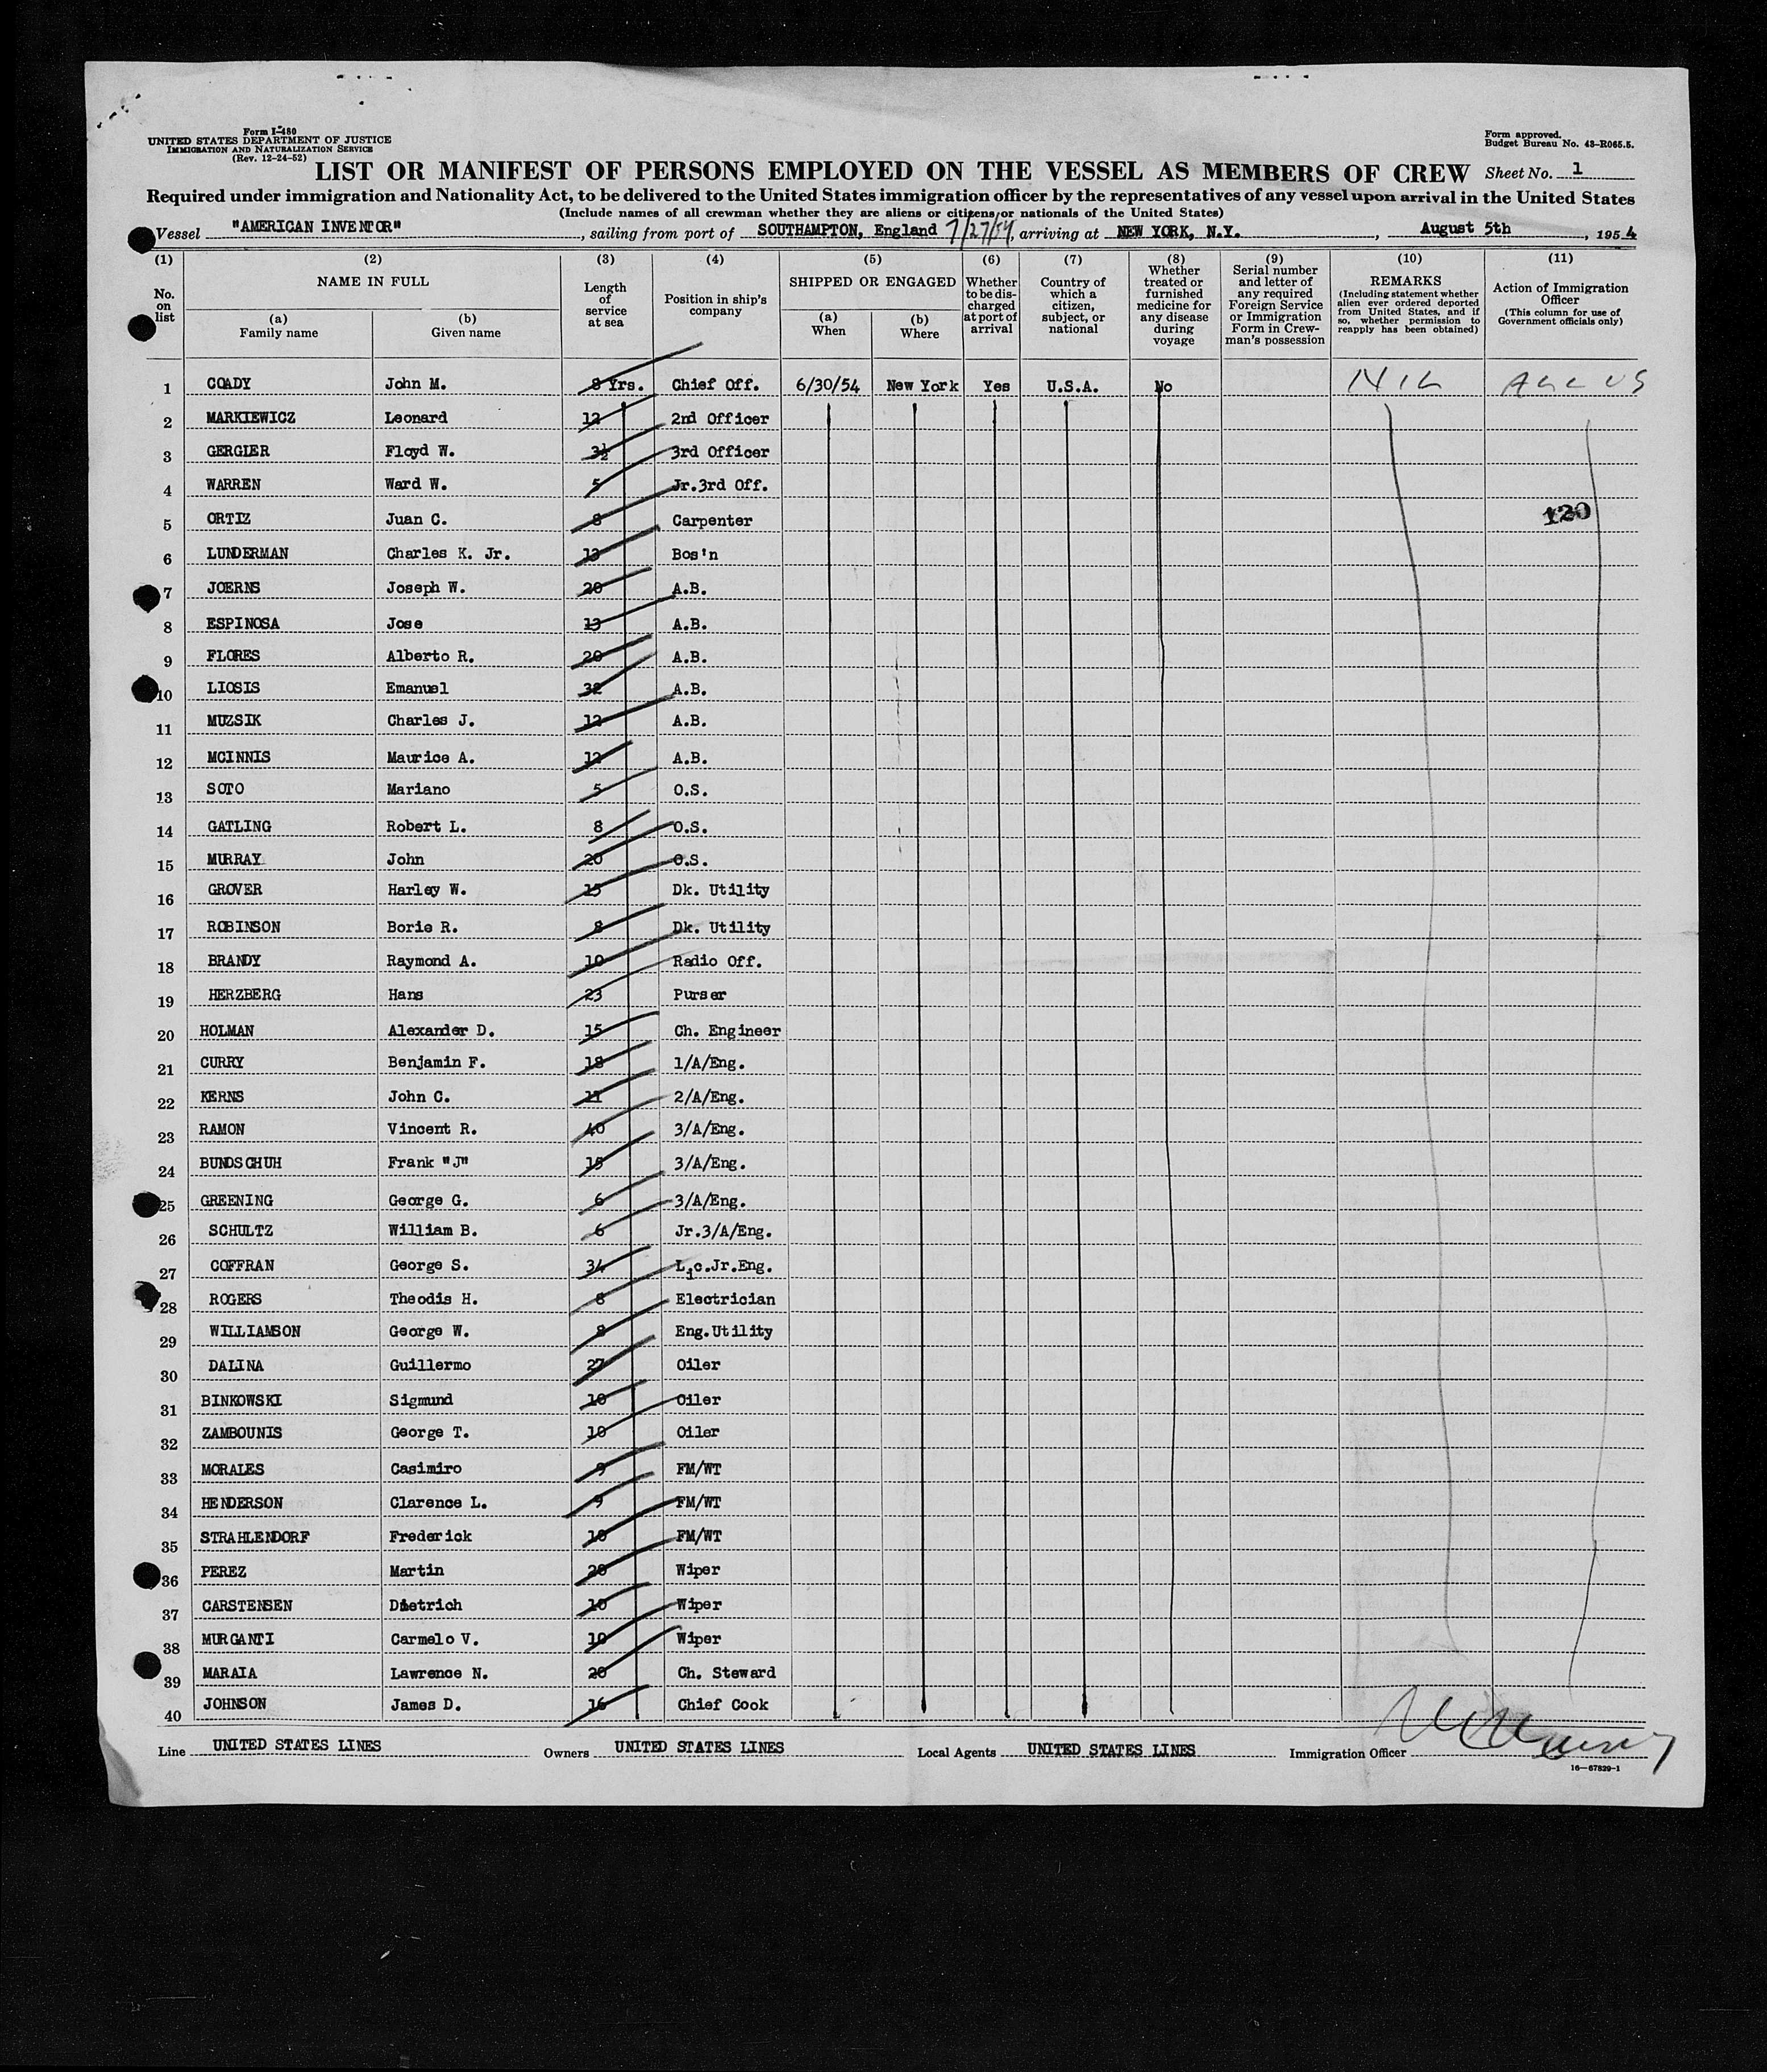 Form I-480
UNITED STATES DEPARTMENT OF JUSTICE
IMMIGRATION AND NATURALIZATION SERVICE
(Rev. 12-24-52)
Form approved.
Budget Bureau No. 43-R065.5.
LIST OR MANIFEST OF PERSONS EMPLOYED ON THE VESSEL AS MEMBERS OF CREW Sheet No. 1
Required under immigration and Nationality Act, to be delivered to the United States immigration officer by the representatives of any vessel upon arrival in the United States
(Include names of all crewman whether they are aliens or citizens or nationals of the United States)
Vessel "AMERICAN INVENTOR", sailing from port of SOUTHAMPTON, England 7/27/54, arriving at NEW YORK, N.Y., August 5th, 1954
(1) (2) (3) (4) (5) (6) (7) (8) (9) (10) (11)
No. on list
NAME IN FULL
(a) Family name
(b) Given name
Length of service at sea
Position in ship's company
SHIPPED OR ENGAGED
(a) When
(b) Where
Whether to be discharged at port of arrival
Country of which a citizen, subject, or national
Whether treated or furnished medicine for any disease during voyage
Serial number and letter of any required Foreign Service or Immigration Form in Crewman's possession
REMARKS
(Including statement whether alien ever ordered deported from United States, and if so, whether permission to reapply has been obtained)
Action of Immigration Officer
(This column for use of Government officials only)
1 COADY John M. 8 Yrs. Chief Off. 6/30/54 New York Yes U.S.A. No NIL ALL US
2 MARKIEWICZ Leonard 12 2nd Officer
3 GERGIER Floyd W. 3½ 3rd Officer
4 WARREN Ward W. 5 Jr.3rd Off.
5 ORTIZ Juan C. 8 Carpenter 120
6 LUNDERMAN Charles K. Jr. 13 Bos'n
7 JOERNS Joseph W. 20 A.B.
8 ESPINOSA Jose 13 A.B.
9 FLORES Alberto R. 20 A.B.
10 LIOSIS Emanuel 32 A.B.
11 MUZSIK Charles J. 12 A.B.
12 MCINNIS Maurice A. 12 A.B.
13 SOTO Mariano 5 O.S.
14 GATLING Robert L. 8 O.S.
15 MURRAY John 20 O.S.
16 GROVER Harley W. 15 Dk. Utility
17 ROBINSON Borie R. 8 Dk. Utility
18 BRANDY Raymond A. 10 Radio Off.
19 HERZBERG Hans 23 Purser
20 HOLMAN Alexander D. 15 Ch. Engineer
21 CURRY Benjamin F. 18 1/A/Eng.
22 KERNS John C. 11 2/A/Eng.
23 RAMON Vincent R. 40 3/A/Eng.
24 BUNDSCHUH Frank "J" 15 3/A/Eng.
25 GREENING George G. 6 3/A/Eng.
26 SCHULTZ William B. 6 Jr.3/A/Eng.
27 COFFRAN George S. 34 Lic.Jr.Eng.
28 ROGERS Theodis H. 8 Electrician
29 WILLIAMSON George W. 8 Eng.Utility
30 DALINA Guillermo 27 Oiler
31 BINKOWSKI Sigmund 10 Oiler
32 ZAMBOUNIS George T. 10 Oiler
33 MORALES Casimiro 9 FM/WT
34 HENDERSON Clarence L. 9 FM/WT
35 STRAHLENDORF Frederick 10 FM/WT
36 PEREZ Martin 20 Wiper
37 CARSTENSEN Dietrich 10 Wiper
38 MURGANTI Carmelo V. 10 Wiper
39 MARAIA Lawrence N. 20 Ch. Steward
40 JOHNSON James D. 16 Chief Cook
Line UNITED STATES LINES Owners UNITED STATES LINES Local Agents UNITED STATES LINES Immigration Officer
16—67829-1